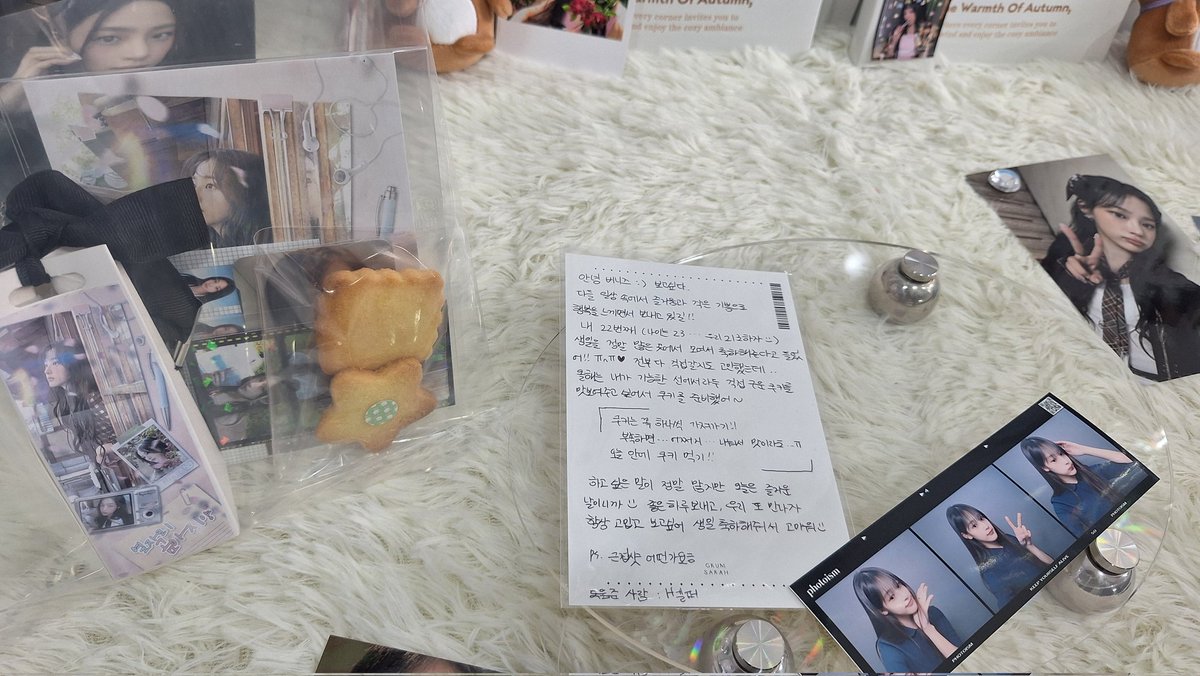 The Warmth Of Autumn,
every corner invites you to
and enjoy the cozy ambiance
Warmth Of Autumn,
every corner invites you to
and enjoy the cozy ambiance
안녕 버니즈 :) 보고싶다.
다들 일상 속에서 즐거움과 작은 기쁨으로
행복을 느끼면서 보내고 있길!!
내 22번째 (나이는 23 ... 우리 21로하자 :)
생일을 정말 많은 곳에서 모여서 축하해준다고 들었
어!! ㅠㅅㅠ♥ 전부 다 직접갈지도 고민했는데..
올해는 내가 가능한 선에서라도 직접 구운 쿠키를
맛보여주고 싶어서 쿠키를 준비했어~
쿠키는 꼭 하나씩 가져가기!!
부족하면... 어쩌지... 나눠서 맛이라도..ㅠ
오늘 안에 쿠키 먹기!!
하고 싶은 말이 정말 많지만 오늘은 즐거운
날이니까 좋은 하루 보내고, 우리 또 만나자
항상 고맙고 보고싶어 생일 축하해주셔서 고마워
PS. 근접샷 어떤가요
GRUM
SARAH
도움준 사람 : H헬퍼
photoism
PHOTOISM
KEEP YOURSELF ALIVE
PHOTOISM